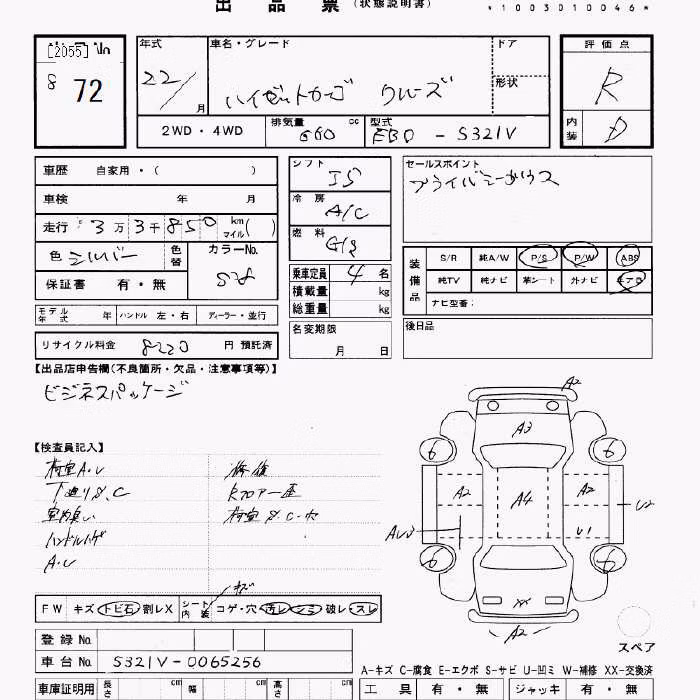 出品票 (状態説明書)
*1003010046*
[2055]
8 72
年式 22/ 月
車名・グレード ハイゼットカーゴ クルーズ
ドア
形状
評価点 R
内装 D
2WD・4WD
排気量 660 cc
型式 EBD - S321V
車歴 自家用・( )
車検 年 月
走行 3万3千850 km マイル( )
色 シルバー 色替
カラーNo. S28
保証書 有・無
シフト I5
冷房 A/C
燃料 G/S
乗車定員 4 名
積載量 kg
総重量 kg
セールスポイント
プライバシーガラス
装備品 S/R 純A/W P/S P/W ABS
純TV 純ナビ 革シート 外ナビ エアB
ナビ型番:
モデル年式 年 ハンドル 左・右 ディーラー・並行
名変期限 月 日
後日品
リサイクル料金 8220 円 預託済
【出品店申告欄(不良箇所・欠品・注意事項等)】
ビジネスパッケージ
【検査員記入】
荷室A.U 修復
下廻りS.C
室内臭い 荷室S.C.穴
ハンドルハゲ
A.U
A2
A3
6 6
A2 A4 A2 U2
AU3 U1
6 6
XX
A2
スペア
FW キズ トビ石 割レX シート内装 コゲ・穴 汚レ シミ 破レ・スレ
キズ
登録No.
車台No. S321V-0065256
A-キズ C-腐食 E-エクボ S-サビ U-凹ミ W-補修 XX-交換済
車庫証明用 長さ cm 幅 cm 高さ cm
工具 有・無 ジャッキ 有・無